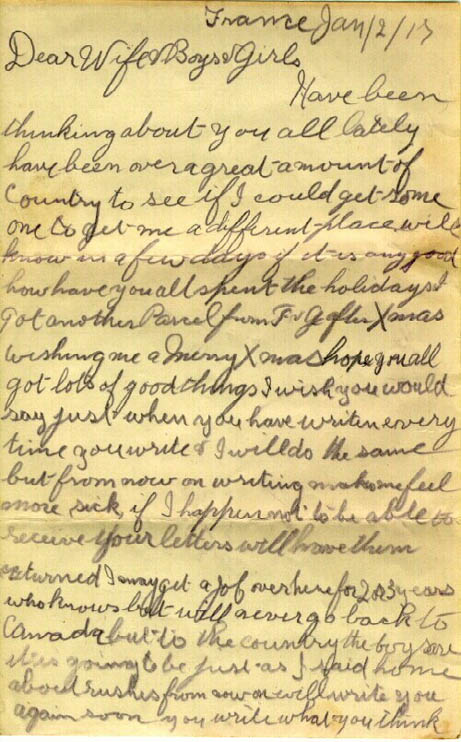 France Jan/2/17
Dear Wife & Boys & Girls
Have been
thinking about you all lately
have been over a great amount of
Country to see if I could get some
one to get me a different place will
know in a few days if it is any good
how have you all spent the holidays I
got another Parcel from after Xmas
wishing me a Merry Xmas hope you all
got lots of good things I wish you would
say just when you have writen every
time you write & I will do the same
but from now on writing makes me feel
more sick, if I happen not to be able to
receive your letters will have them
returned I may get a job over here for 2 or 3 years
who knows but will never go back to
Canada but to the country the boys are
it is going to be just as I said home
about from now on will write you
again soon you write what you think